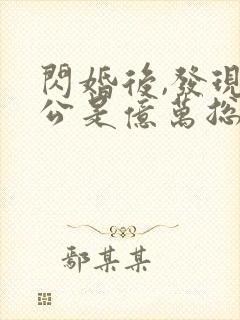 閃婚後,發現
公是億萬總
鄢某某